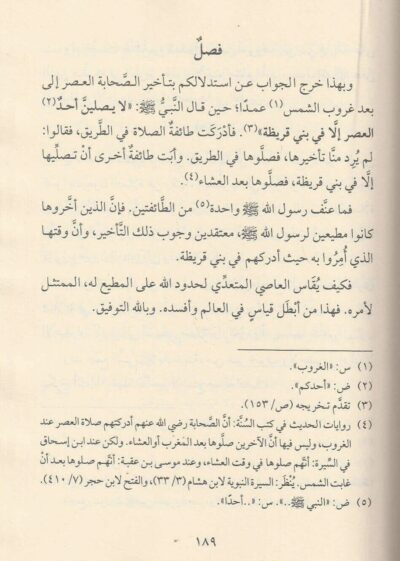 فصلٌ
وبهذا خرج الجواب عن استدلالكم بتأخير الصَّحابة العصر إلى
بعد غروب الشمس(١) عمدًا؛ حين قال النَّبيُّ ﷺ: «لا يصلينَّ أحدٌ(٢)
العصر إلَّا في بني قريظة»(٣). فأدْرَكَت طائفةٌ الصلاة في الطَّريق، فقالوا:
لم يُرِد منَّا تأخيرها، فصلَّوها في الطريق. وأبَت طائفة أخرى أنْ تصلِّيها
إلَّا في بني قريظة، فصلَّوها بعد العشاء(٤).
فما عنَّف رسول الله ﷺ واحدة(٥) من الطَّائفتين. فإنَّ الذين أخَّروها
كانوا مطيعين لرسول الله ﷺ، معتقدين وجوب ذلك التَّأخير، وأنَّ وقتها
الذي أُمِرُوا به حيث أدركهم في بني قريظة.
فكيف يُقَاس العاصي المتعدِّي لحدود الله على المطيع له، الممتثل
لأمره. فهذا من أبْطَل قياسٍ في العالم وأفسده. وبالله التوفيق.
(١) س: «الغروب».
(٢) ض: «أحدكم».
(٣) تقدَّم تخريجه (ص/١٥٣).
(٤) روايات الحديث في كتب السُّنَّة: أنَّ الصَّحابة رضي الله عنهم أدركتهم صلاة العصر عند
الغروب، وليس فيها أنَّ الآخرين صلَّوها بعد المغرب أو العشاء. ولكن عند ابن إسحاق
في السِّيرة: أنَّهم صلوها في وقت العشاء، وعند موسى بن عقبة: أنَّهم صلَّوها بعد أنْ
غابت الشمس. يُنْظَر: السيرة النبوية لابن هشام (٣/ ٣٣)، والفتح لابن حجر (٧/ ٤١٠).
(٥) ض: «النبي ﷺ..». س: «..أحدًا».
١٨٩